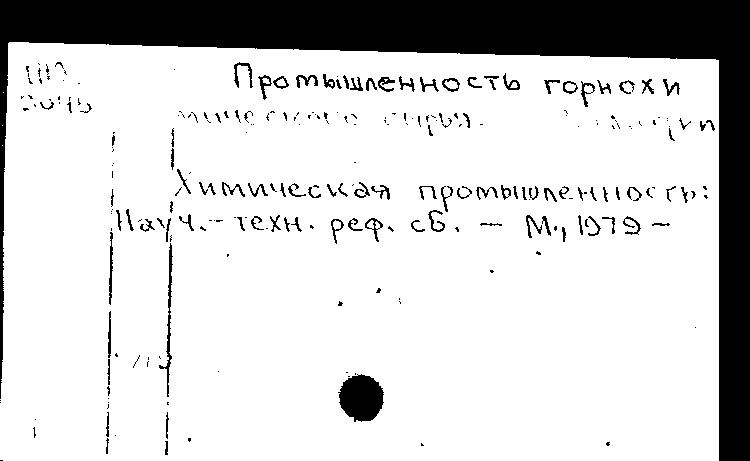 Промышленность горнохи
мического сырья.
Химическая промышленность:
Науч.-техн. реф. сб. — М., 1979 —